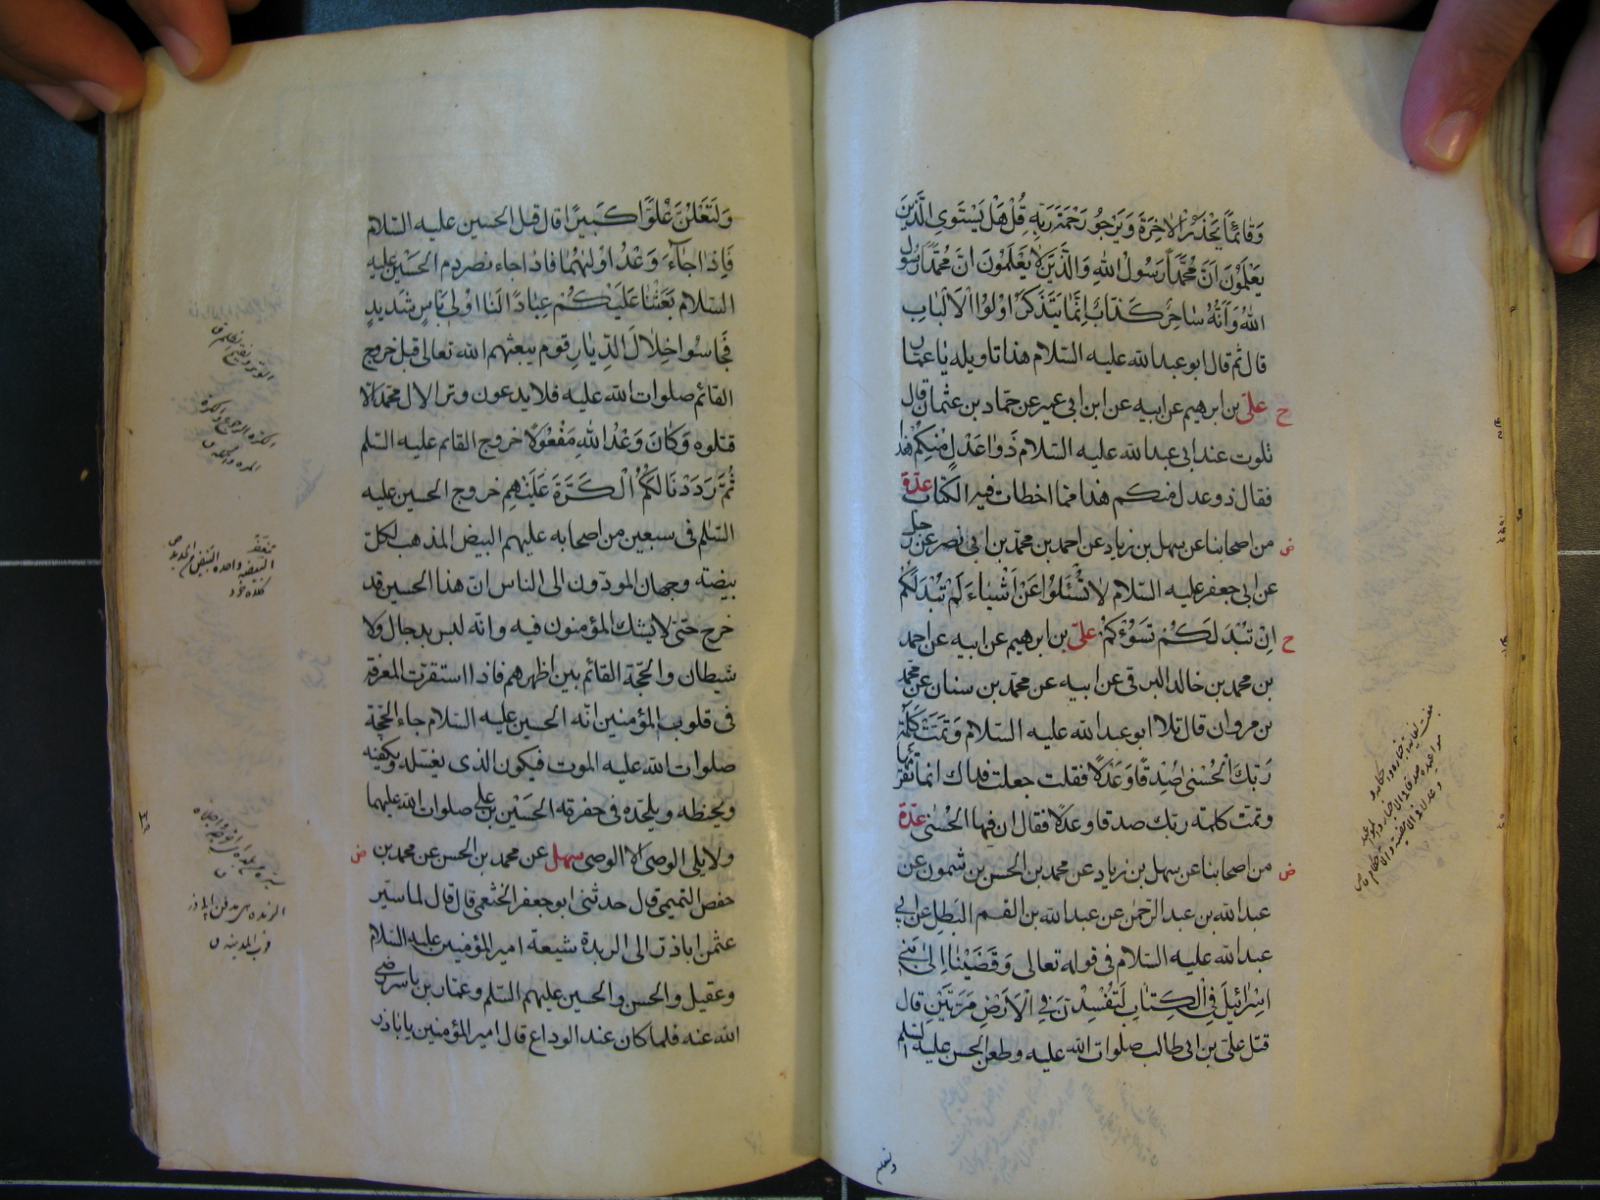 وَقَائِمًا يَحْذَرُ الْآخِرَةَ وَيَرْجُو رَحْمَةَ رَبِّهِ قُلْ هَلْ يَسْتَوِي الَّذِينَ
يَعْلَمُونَ اَنَّ مُحَمَّدًا رَسُولُ اللهِ وَالَّذِينَ لَا يَعْلَمُونَ اَنَّ مُحَمَّدًا رَسُولُ
اللهِ وَاَنَّهُ سَاحِرٌ كَذَّابٌ اِنَّمَا يَتَذَكَّرُ اُولُوا الْاَلْبَابِ
قال ثم قال ابو عبد الله عليه السلام هذا تاويله يا عمار
علي بن ابرهيم عن ابيه عن ابن ابي عمير عن حماد بن عثمان قال
تلوت عند ابي عبد الله عليه السلام ذَوَا عَدْلٍ مِنْكُمْ
فقال ذو عدل منكم هذا مما اخطات فيه الكتاب عدة
من اصحابنا عن سهل بن زياد عن احمد بن محمد بن ابي نصر عن رجل
عن ابي جعفر عليه السلام لَا تَسْئَلُوا عَنْ اَشْيَاءَ لَمْ تُبْدَ لَكُمْ
اِنْ تُبْدَ لَكُمْ تَسُؤْكُمْ علي بن ابرهيم عن ابيه عن احمد
بن محمد بن خالد البرقي عن ابيه عن محمد بن سنان عن محمد
بن مروان قال تلا ابو عبد الله عليه السلام وَتَمَّتْ كَلِمَةُ
رَبِّكَ الْحُسْنَى صِدْقًا وَعَدْلًا فقلت جعلت فداك انما نقرئها
وتمت كلمة ربك صدقا وعدلا فقال ان فيها الحُسْنى عدة
من اصحابنا عن سهل بن زياد عن محمد بن الحسن بن شمون عن
عبد الله بن عبد الرحمن عن عبد الله بن القسم البطل عن ابي
عبد الله عليه السلام في قوله تعالى وَقَضَيْنَا اِلَى بَنِي
اِسْرَائِيلَ فِي الْكِتَابِ لَتُفْسِدُنَّ فِي الْاَرْضِ مَرَّتَيْنِ قال
قتل علي بن ابي طالب صلوات الله عليه وطعن الحسن عليه السلم
ولتعلن
وَلَتَعْلُنَّ عُلُوًّا كَبِيرًا قال قتل الحسين عليه السلام
فَاِذَا جَاءَ وَعْدُ اُولَيهُمَا فاذا جاء نصر دم الحسين عليه
السلام بَعَثْنَا عَلَيْكُمْ عِبَادًا لَنَا اُولِي بَاْسٍ شَدِيدٍ
فَجَاسُوا خِلَالَ الدِّيَارِ قوم يبعثهم الله تعالى قبل خروج
القائم صلوات الله عليه فلا يدعون وترا لال محمد الا
قتلوه وَكَانَ وَعْدُ اللهِ مَفْعُولًا خروج القائم عليه السلم
ثُمَّ رَدَدْنَا لَكُمُ الْكَرَّةَ عَلَيْهِمْ خروج الحسين عليه
السلم في سبعين من اصحابه عليهم البيض المذهب لكل
بيضة وجهان المودون الى الناس ان هذا الحسين قد
خرج حتى لا يشك المؤمنون فيه وانه ليس بدجال ولا
شيطان والحجة القائم بين اظهرهم فاذا استقرت المعرفة
في قلوب المؤمنين انه الحسين عليه السلام جاء الحجة
صلوات الله عليه الموت فيكون الذي يغسله ويكفنه
ويحنطه ويلحده في حفرته الحسين بن علي صلوات الله عليهما
ولا يلي الوصي الا الوصي سهل عن محمد بن الحسن عن محمد بن
حفص التميمي قال حدثني ابو جعفر الخثعمي قال قال لما سير
عثمن اباذر الى الربذة شيعه امير المؤمنين عليه السلام
وعقيل والحسن والحسين عليهم السلم وعمار بن ياسر رضي
الله عنه فلما كان عند الوداع قال امير المؤمنين يا باذر